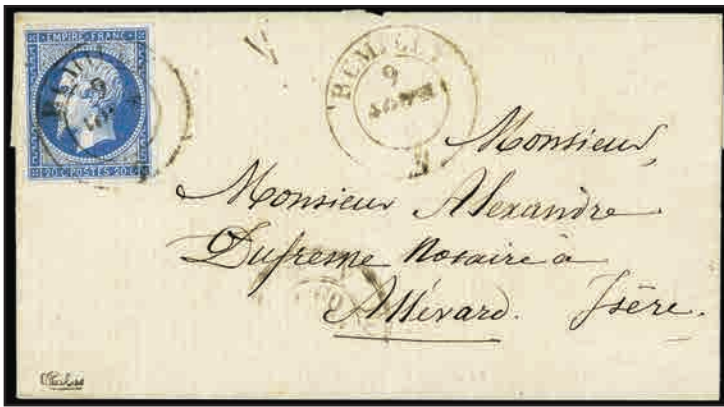 EMPIRE FRANC.
20 C. POSTES 20 C.
RUMILLY
9
Monsieur,
Monsieur Alexandre
Dufresne Notaire à
Allévard. Isère.